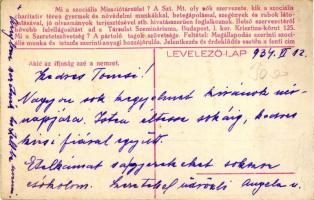 Mi a szociális Missziótársulat? A Szt. Mt. oly nők szervezete, kik a szociális
charitativ téren gyermek és növédelmi munkákkal, betegápolással, szegények és rabok láto-
gatásával, jó olvasmányok terjesztésével stb. hivatásszerűen foglalkoznak. Belső szervezetéről
bővebb felvilágosítást ad a Társulat Szemináriuma, Budapest, I. ker. Krisztina-körút
Mi a Szeretetszövetség? A pártoló tagok szövetsége. Feltétel: Megállapodás szerinti szociá-
lis munka és tetszés szerinti anyagi hozzájárulás. Jelentkezés és érdeklődés esetén a fenti cím
Aki az ifjuság azé a nemzet.
LEVELEZŐ-LAP
934. VI 12
Kedves Tomsi!
Nagyon sok kegyelmet kívánok név-
napjára. Isten éltesse sokáig, kedves
kicsi fiával együtt.
Etelkámat s a gyerekeket sokszor
csókolom. Szeretettel üdvözli Angela n.